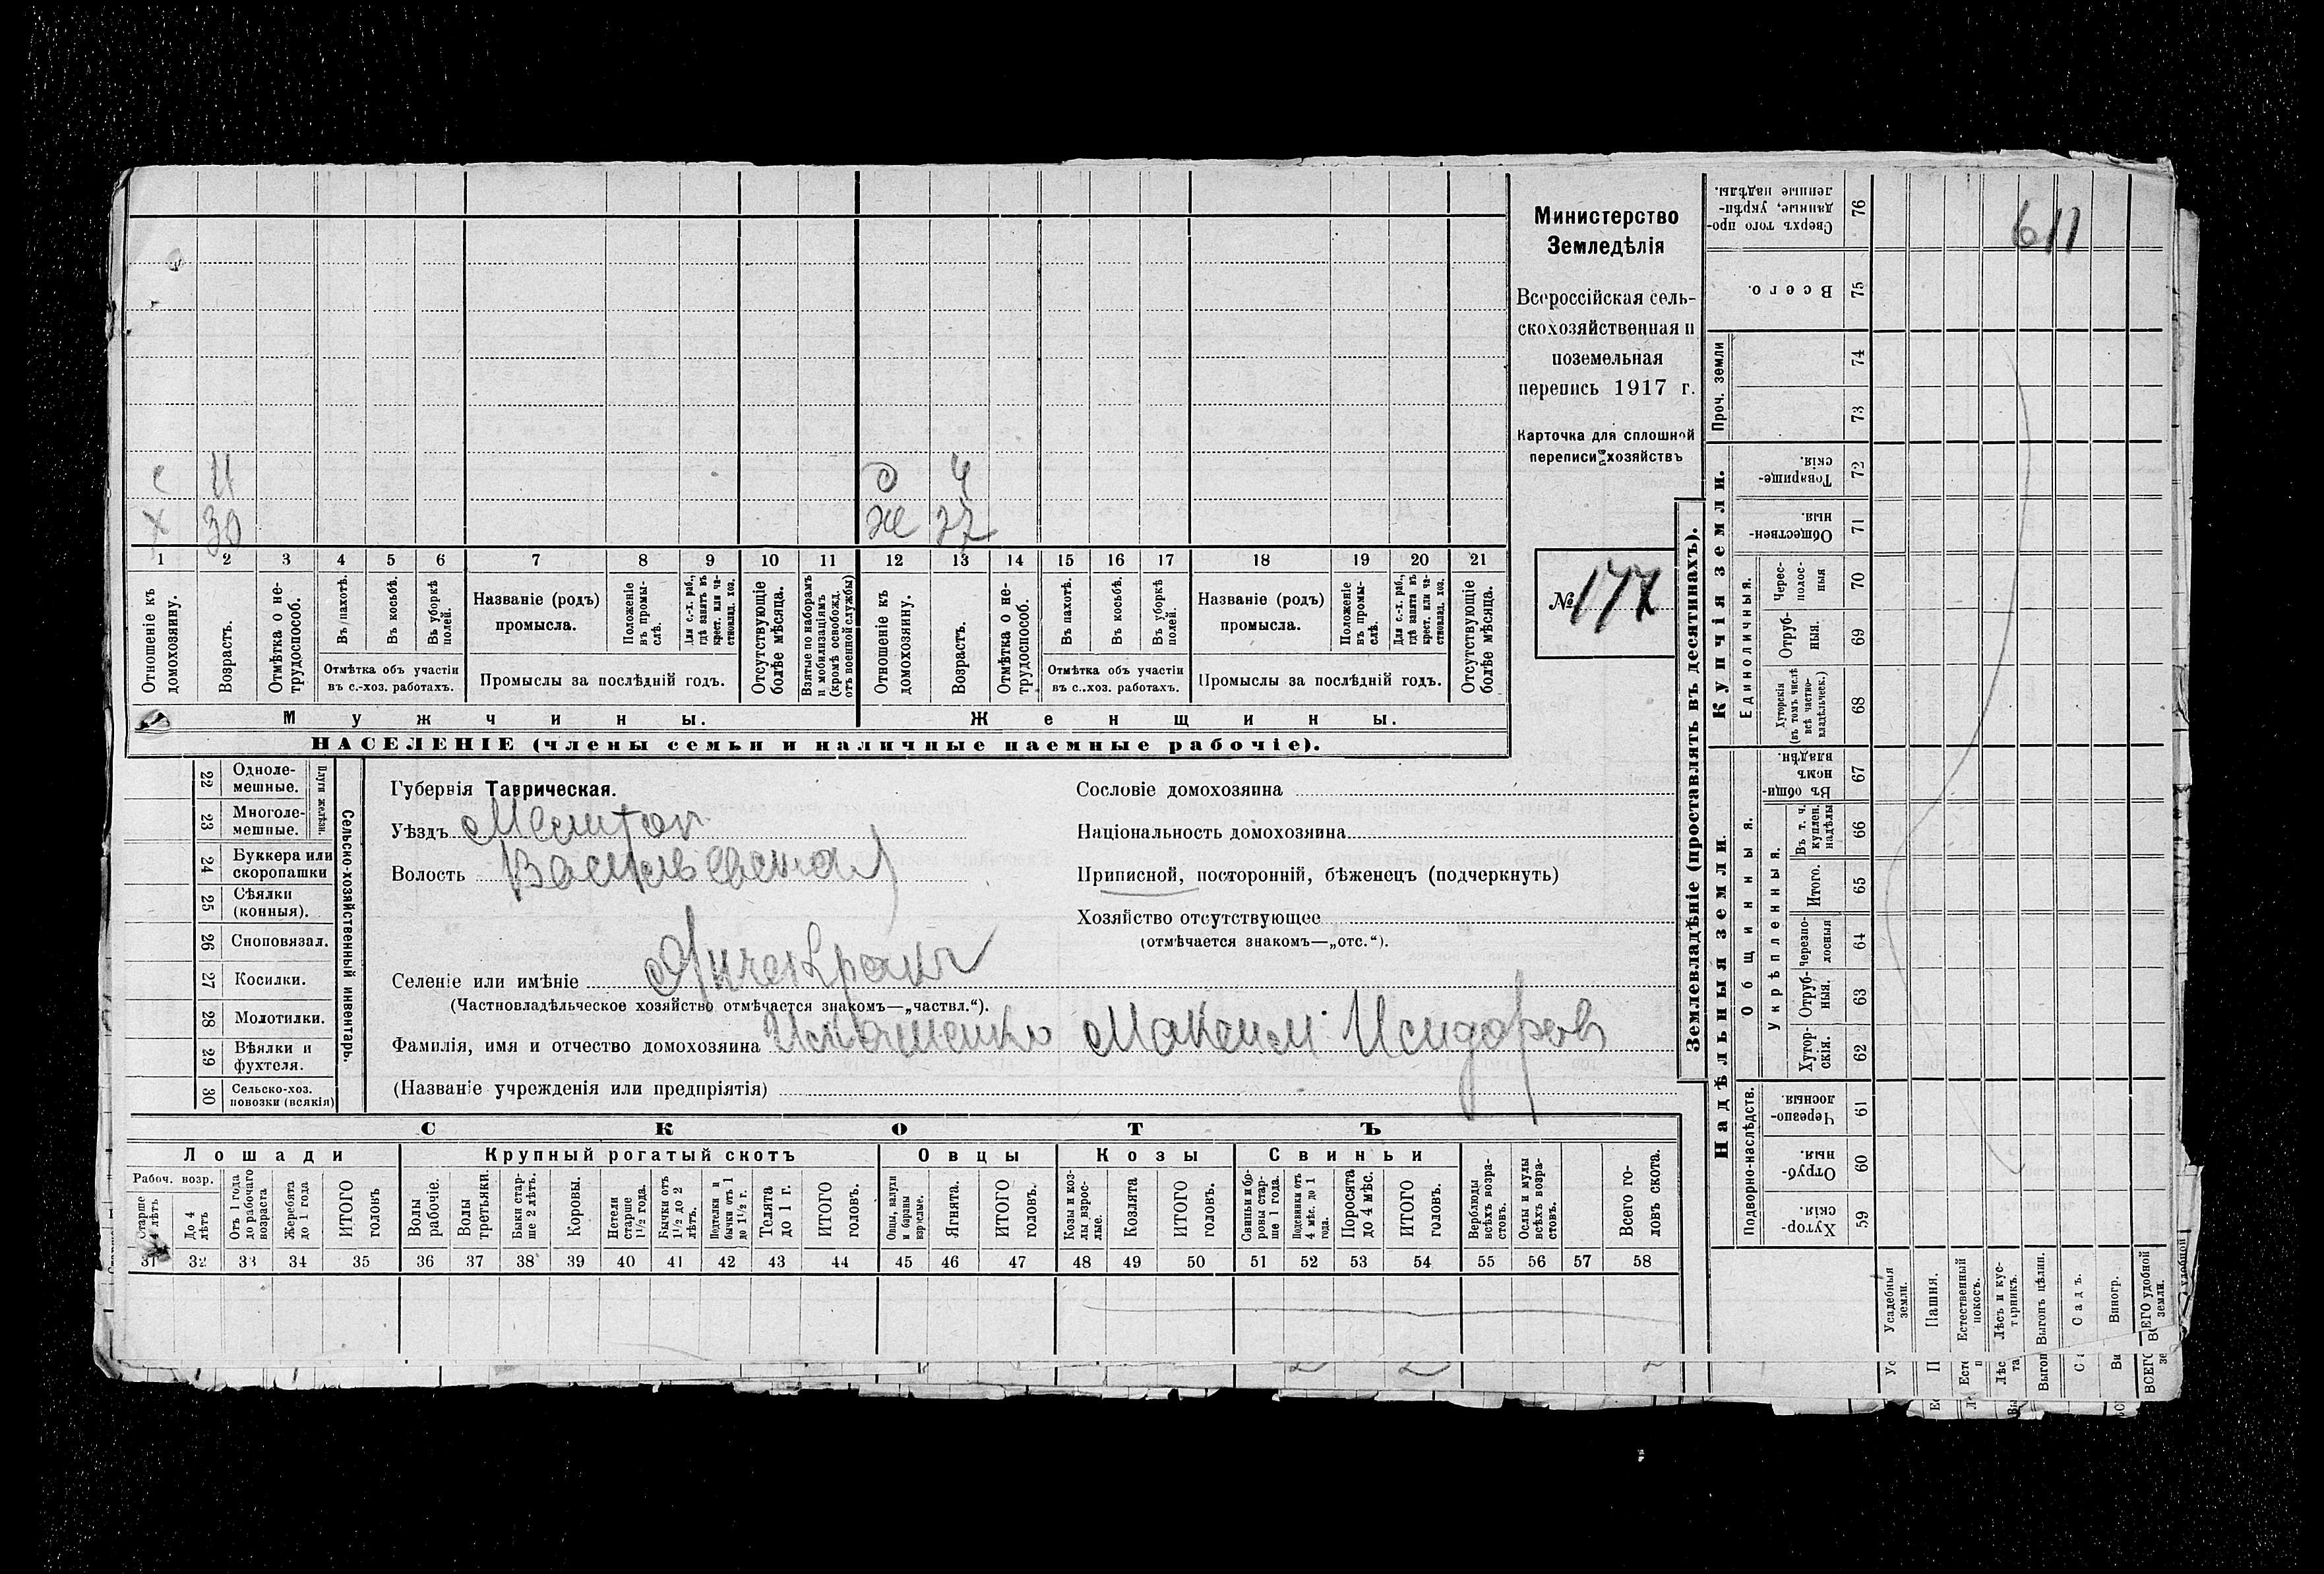 с 11 д 4
х 30 ж 27
1 2 3 4 5 6 7 8 9 10 11 12 13 14 15 16 17 18 19 20 21
Отношеніе къ домохозяину.
Возрастъ.
Отмѣтка о не-трудоспособ.
Въ пахотѣ.
Въ косьбѣ.
Въ уборкѣ полей.
Отмѣтка объ участіи
въ с.-хоз. работахъ.
Названіе (родъ)
промысла.
Положеніе въ промы-слѣ.
Для с.-х. раб., гдѣ занятъ въ крест. или ча-ствовлад. хоз.
Промыслы за послѣдній годъ.
Отсутствующіе болѣе мѣсяца.
Взятые по наборамъ и мобилизаціямъ (кромѣ освобожд. отъ военной службы)
Отношеніе къ домохозяину.
Возрастъ.
Отмѣтка о не-трудоспособ.
Въ пахотѣ.
Въ косьбѣ.
Въ уборкѣ полей.
Отмѣтка объ участіи
въ с.-хоз. работахъ.
Названіе (родъ)
промысла.
Положеніе въ промы-слѣ.
Для с.-х. раб., гдѣ занята въ крест. или ча-ствовлад. хоз.
Промыслы за послѣдній годъ.
Отсутствующіе болѣе мѣсяца.
Мужчины. Женщины.
НАСЕЛЕНІЕ (члены семьи и наличные наемные рабочіе).
Министерство
Земледѣлія
Всероссійская сель-
скохозяйственная и
поземельная
перепись 1917 г.
Карточка для сплошной
переписи хозяйствъ
№ 177
22 Одноле-мешные.
23 Многоле-мешные.
Плуги желѣзн.
24 Буккера или скоропашки
25 Сѣялки (конныя).
26 Сноповязал.
27 Косилки.
28 Молотилки.
29 Вѣялки и фухтеля.
30 Сельско-хоз. повозки (всякія)
Сельско-хозяйственный инвентарь.
Губернія Таврическая.
Уѣздъ Мелитоп
Волость Васильевская
Селеніе или имѣніе Янчекракъ
(Частновладѣльческое хозяйство отмѣчается знакомъ—„частвл.“).
Фамилія, имя и отчество домохозяина Максим Исидоров
(Названіе учрежденія или предпріятія)
Сословіе домохозяина
Національность домохозяина
Приписной, посторонній, бѣженецъ (подчеркнуть)
Хозяйство отсутствующее
(отмѣчается знакомъ—„отс.“).
СКОТЪ
Лошади Крупный рогатый скотъ Овцы Козы Свиньи
Рабоч. возр.
Старше 4 лѣтъ
До 4 лѣтъ
Отъ 1 года до рабочаго возраста
Жеребята до 1 года
ИТОГО головъ
Волы рабочіе.
Волы третьяки.
Быки стар-ше 2 лѣтъ.
Коровы.
Нетели старше 1½ года.
Бычки отъ 1½ до 2 лѣтъ.
Подтелки и бычки отъ 1 до 1½ г.
Телята до 1 г.
ИТОГО головъ.
Овцы, валухи и бараны взрослые.
Ягнята.
ИТОГО головъ.
Козы и коз-лы взрос-лые.
Козлята
ИТОГО головъ.
Свиньи и бо-ровы стар-ше 1 года.
Подсвинки отъ 4 мѣс. до 1 года.
Поросята до 4 мѣс.
ИТОГО головъ.
Верблюды всѣхъ возра-стовъ.
Ослы и мулы всѣхъ возра-стовъ.
Всего го-ловъ скота.
31 32 33 34 35 36 37 38 39 40 41 42 43 44 45 46 47 48 49 50 51 52 53 54 55 56 57 58
Землевладѣніе (проставлять въ десятинахъ).
611
76 Сверхъ того про-данные, укрѣп-ленные надѣлы.
75 Всего.
74
73
Проч. земли
72 Товарище-скія.
71 Обществен-ныя.
70 Черес-полос-ныя
69 Отруб-ныя.
68 Хуторскія (въ томъ числѣ всѣ частно-владѣльческ.)
Единоличныя.
Купчія земли.
67 Въ общин-номъ владѣн.
66 Въ т. ч. куплен. надѣлы
65 Итого.
64 Черезпо-лосныя
63 Отруб-ныя.
62 Хутор-скія.
Укрѣпленныя.
Общинныя.
61 Черезпо-лосныя.
60 Отруб-ныя.
59 Хутор-скія.
Подворно-наслѣдств.
Надѣльныя земли.
Усадебныя земли.
Пашня.
Естественный покосъ.
Лѣсъ и кус-тарникъ.
Выгонъ цѣлин.
Садъ.
Виногр.
ВСЕГО удобной земли.